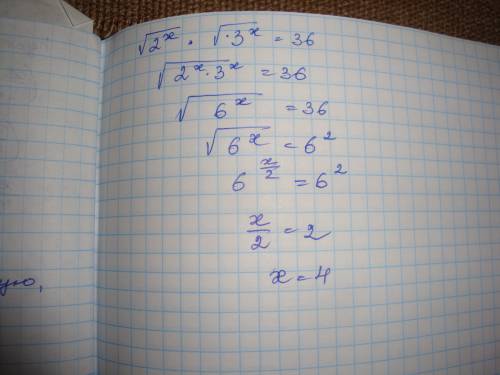 √2^x · √·3^x = 36
√2^x·3^x = 36
√6^x = 36
√6^x = 6^2
6^(x/2) = 6^2
x/2 = 2
x = 4